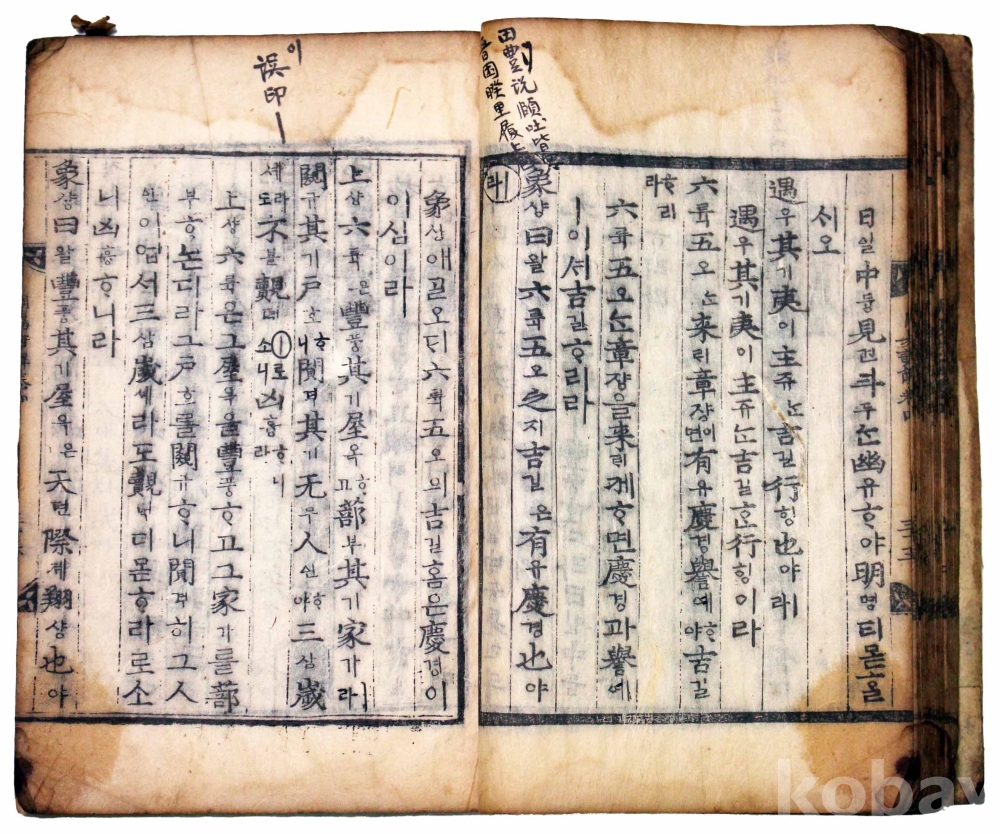 日일中듕見견斗두ㅣ오幽유ᄒᆞ야明명티몯ᄒᆞᆯ
ᄉᆡ오
遇우其기夷이主쥬ᄂᆞᆫ吉길行ᄒᆡᆼ也야ㅣ라
遇우其기夷이主쥬ᄂᆞᆫ吉길ᄒᆞᆫ行ᄒᆡᆼ이라
六륙五오ᄂᆞᆫ來ᄅᆡ章쟝이면有유慶경譽예ᄒᆞ야吉길
ᄒᆞ리라
六륙五오ᄂᆞᆫ章쟝을來ᄅᆡ케ᄒᆞ면慶경과譽예
ㅣ이셔吉길ᄒᆞ리라
象샹曰왈六륙五오之지吉길은有유慶경也야
ㅣ라
象샹애ᄀᆞᆯ오ᄃᆡ六륙五오의吉길홈은慶경이
이심이라
上샹六륙은豐풍其기屋옥ᄒᆞ고蔀부其기家가ㅣ라
闚규其기戶호ᄒᆞ니闃격其기无무人인ᄒᆞ야三삼歲
셰라도不블覿뎍이로소니凶흉ᄒᆞ니라
上샹六륙은그屋옥을豐풍ᄒᆞ고그家가를蔀
부ᄒᆞ논디라그戶호를闚규ᄒᆞ니闃격히그人
인이업서三삼歲셰라도覿뎍디몯ᄒᆞ리로소
니凶흉ᄒᆞ니라
象샹曰왈豐풍其기屋옥은天텬際졔翔샹也야
이
誤印
kobay